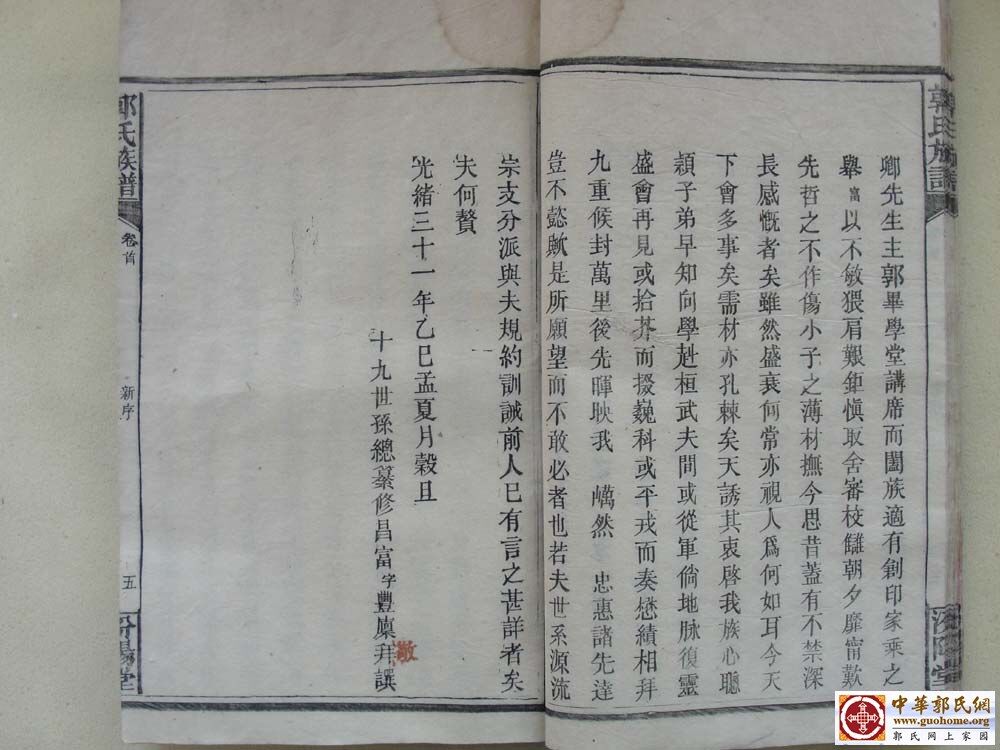 郭氏族譜
汾陽堂
卿先生主郭畢學堂講席而闔族適有創印家乘之
舉富以不敏猥肩艱鉅慎取舍審校讎朝夕靡甯歎
先哲之不作傷小子之薄材撫今思昔蓋有不禁深
長感慨者矣雖然盛衰何常亦視人爲何如耳今天
下會多事矣需材亦孔棘矣天誘其衷啓我族心聽
穎子弟早知向學赳桓武夫間或從軍倘地脉復靈
盛會再見或拾芥而掇巍科或平戎而奏懋績相拜
九重候封萬里後先暉映我 巁然 忠惠諸先達
豈不懿歟是所願望而不敢必者也若夫世系源流
宗支分派與夫規約訓誡前人已有言之甚詳者矣
夫何贅
光緒三十一年乙巳孟夏月穀旦
十九世孫總纂修昌富字豐廩拜譔
敬
郭氏族譜
卷首
新序
五
汾陽堂
中華郭氏網
www.guohome.org
郭氏网上家园